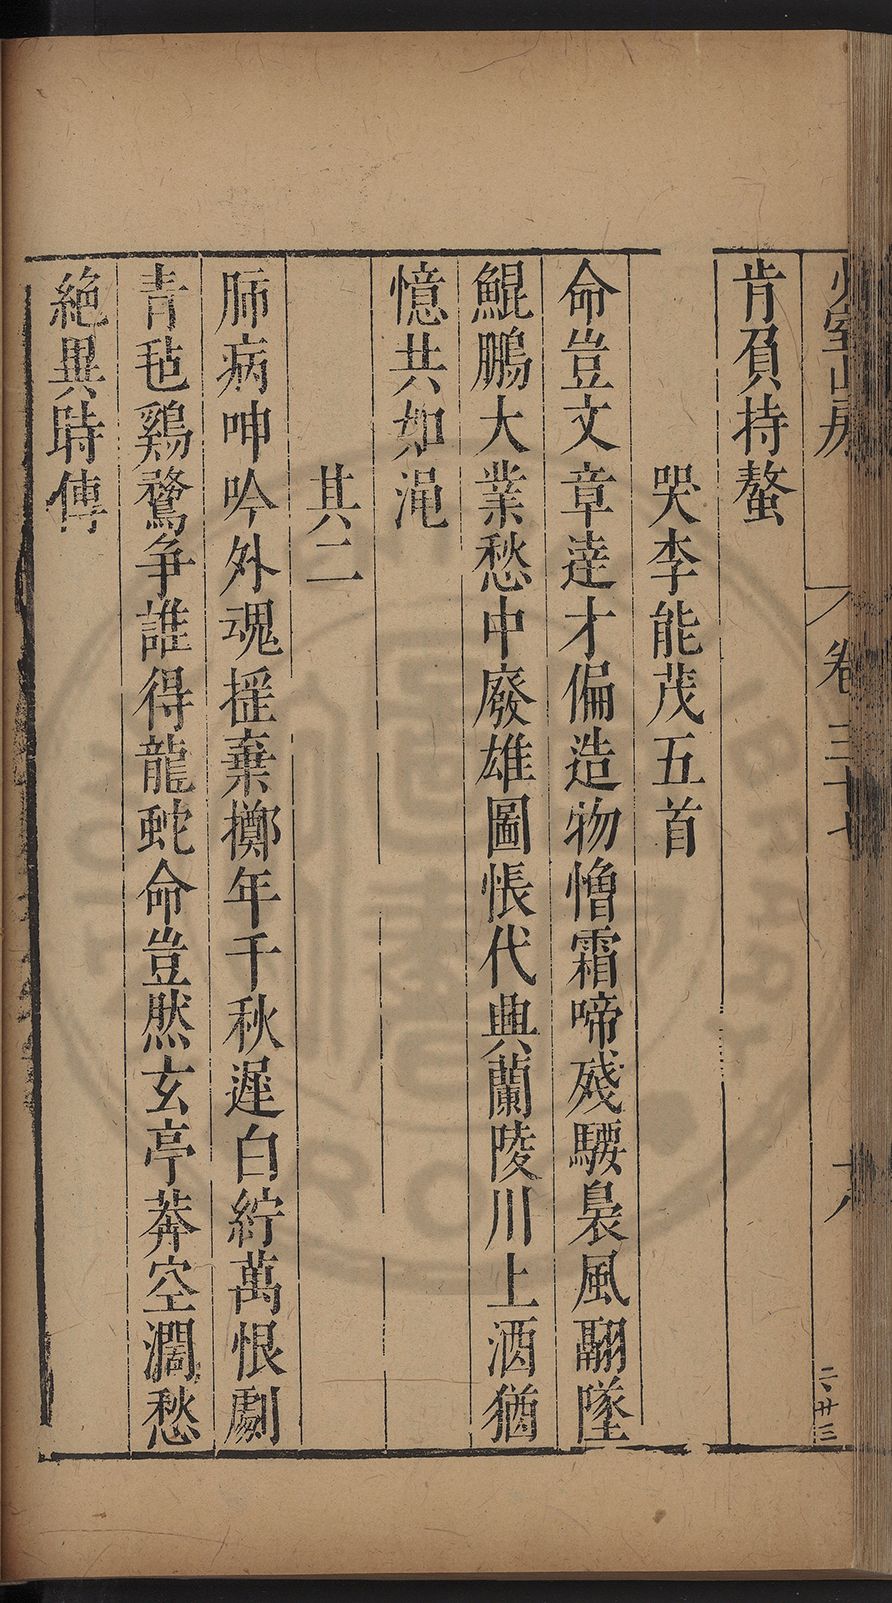 少室山房
卷三十七
六
二、廿三
肯負持螯
哭李能茂五首
命豈文章達才偏造物憎霜啼殘騕褭風翮墜
鯤鵬大業愁中廢雄圖悵代興蘭陵川上酒猶
憶共如澠
其二
肺病呻吟外魂搖棄擲年千秋遲白紵萬恨劇
青氊鷄鶩争誰得龍蛇命豈然玄亭莽空濶愁
絶異時傳